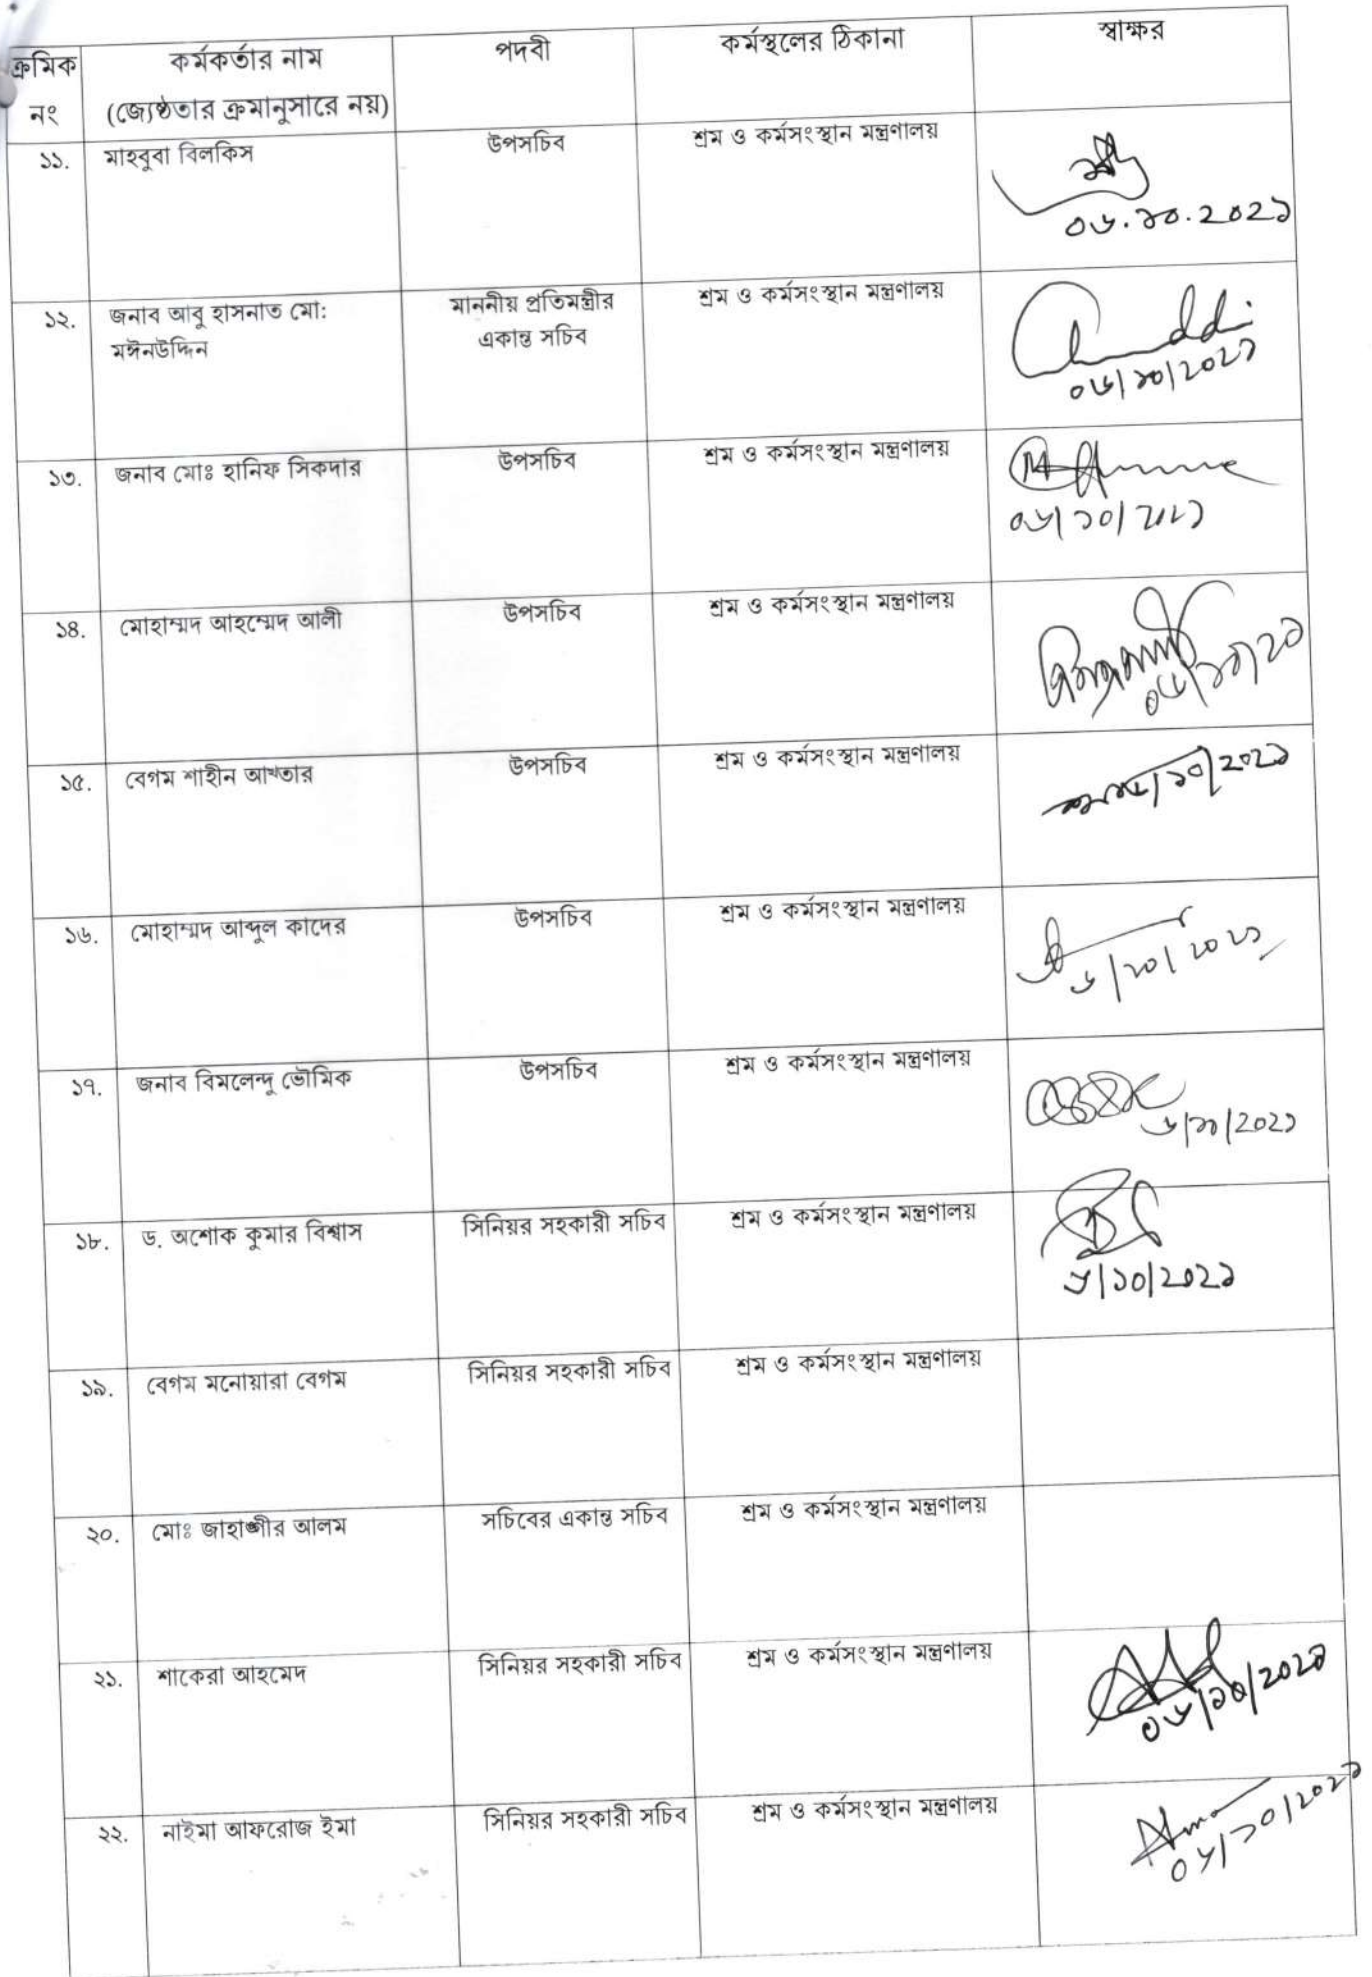 ক্রমিক নং | কর্মকর্তার নাম (জ্যেষ্ঠতার ক্রমানুসারে নয়) | পদবী | কর্মস্থলের ঠিকানা | স্বাক্ষর
১১. মাহবুবা বিলকিস উপসচিব শ্রম ও কর্মসংস্থান মন্ত্রণালয়
০৬.১০.২০২১
১২. জনাব আবু হাসনাত মো: মাননীয় প্রতিমন্ত্রীর শ্রম ও কর্মসংস্থান মন্ত্রণালয়
মঈনউদ্দিন একান্ত সচিব
০৬/১০/২০২১
১৩. জনাব মোঃ হানিফ সিকদার উপসচিব শ্রম ও কর্মসংস্থান মন্ত্রণালয়
০৬/১০/২০২১
১৪. মোহাম্মদ আহম্মেদ আলী উপসচিব শ্রম ও কর্মসংস্থান মন্ত্রণালয়
১৫. বেগম শাহীন আখতার উপসচিব শ্রম ও কর্মসংস্থান মন্ত্রণালয়
১৬. মোহাম্মদ আব্দুল কাদের উপসচিব শ্রম ও কর্মসংস্থান মন্ত্রণালয়
৬/১০/২০২১
১৭. জনাব বিমলেন্দু ভৌমিক উপসচিব শ্রম ও কর্মসংস্থান মন্ত্রণালয়
৬/১০/২০২১
১৮. ড. অশোক কুমার বিশ্বাস সিনিয়র সহকারী সচিব শ্রম ও কর্মসংস্থান মন্ত্রণালয়
৬/১০/২০২১
১৯. বেগম মনোয়ারা বেগম সিনিয়র সহকারী সচিব শ্রম ও কর্মসংস্থান মন্ত্রণালয়
২০. মোঃ জাহাঙ্গীর আলম সচিবের একান্ত সচিব শ্রম ও কর্মসংস্থান মন্ত্রণালয়
২১. শাকেরা আহমেদ সিনিয়র সহকারী সচিব শ্রম ও কর্মসংস্থান মন্ত্রণালয়
০৬/১০/২০২১
২২. নাইমা আফরোজ ইমা সিনিয়র সহকারী সচিব শ্রম ও কর্মসংস্থান মন্ত্রণালয়
০৬/১০/২০২১